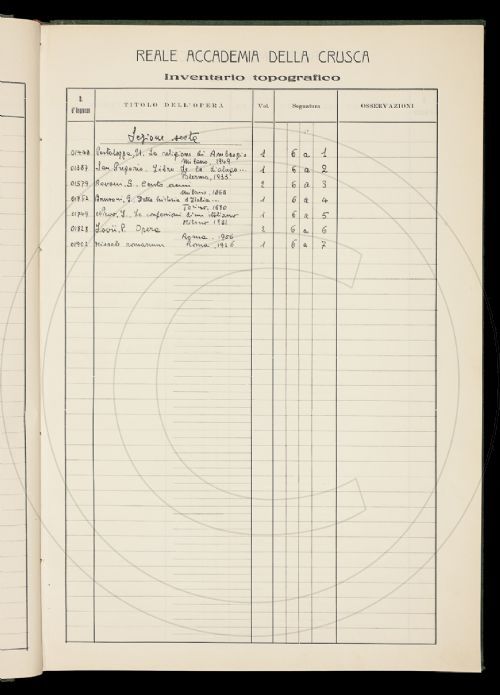 REALE ACCADEMIA DELLA CRUSCA
Inventario topografico
N. d'Ingresso TITOLO DELL'OPERA Vol. Segnatura OSSERVAZIONI
Sezione sesta
Portaluppi, A. La religione di Ambrogio
Milano, 1949 1 6 a 1
San Gregorio. Libro de lu dialagu...
Palermo, 1933 1 6 a 2
01579 Rovani, G. Cento anni
Milano, 1868 2 6 a 3
G. Della historia d'Italia...
Torino, 1 6 a 4
01749 Nievo, I. Le confessioni d'un italiano
Milano 1 6 a 5
01828 Iovii, P. Opera
Roma, 1956 6 a 6
01902 Missale romanum Roma, 1926 1 6 a 7